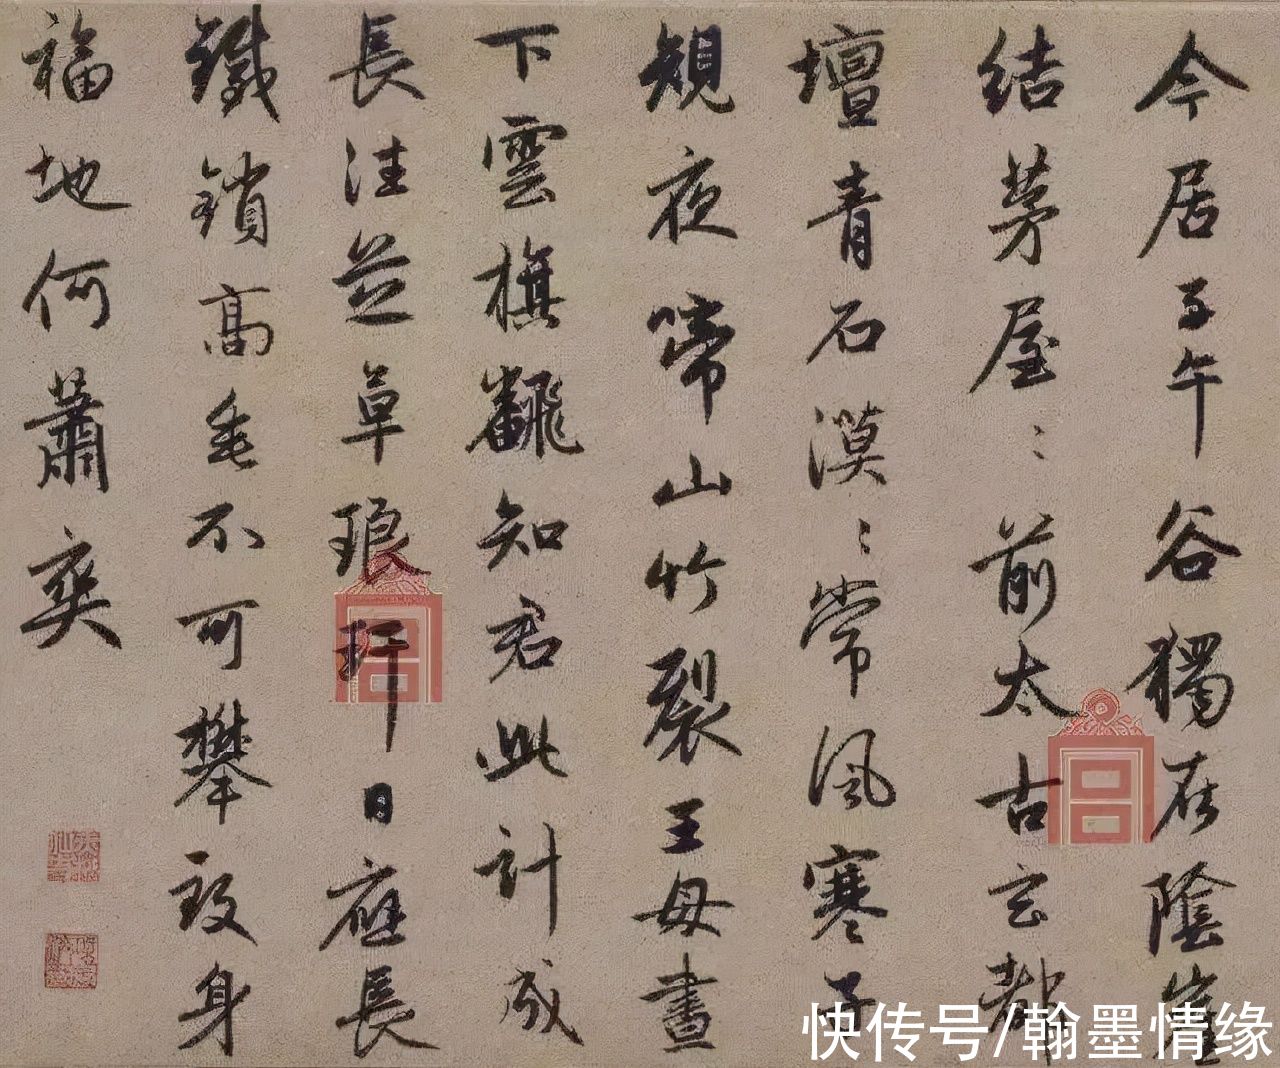 今居子午谷獨在陰崖
結茅屋〻前太古玄都
壇青石漠〻常風寒子
規夜啼山竹裂王母晝
下雲旗翻知君此計成
長往芝草琅玕日應長
鐵鎖高垂不可攀致身
福地何蕭爽
快传号/翰墨情缘